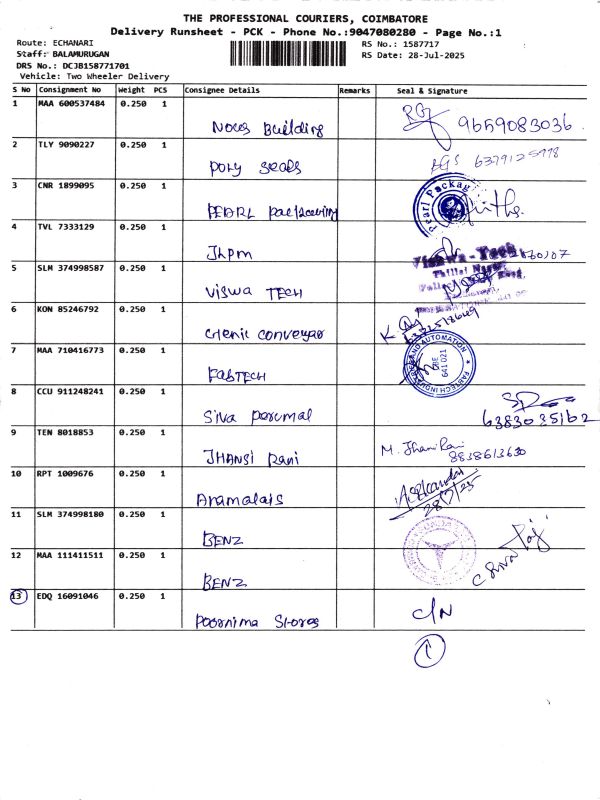 THE PROFESSIONAL COURIERS, COIMBATORE
Delivery Runsheet - PCK - Phone No.:9047080280 - Page No.:1
Route: ECHANARI
RS No.: 1587717
Staff: BALAMURUGAN
RS Date: 28-Jul-2025
DRS No.: DCJB158771701
Vehicle: Two Wheeler Delivery
S No Consignment No Weight PCS Consignee Details Remarks Seal & Signature
1 MAA 600537484 0.250 1
Building 9659083036
2 TLY 9090227 0.250 1
poly seals
3 CNR 1899095 0.250 1
PEARL Pearl Packag
4 TVL 7333129 0.250 1
Jkpm
5 SLM 374998587 0.250 1
Viswa TECH Viswa-Tech
6 KON 85246792 0.250 1
conveyor
7 MAA 710416773 0.250 1
FABTECH AND AUTOMATION CBE 641 021
8 CCU 911248241 0.250 1
Siva perumal 6383035162
9 TEN 8018853 0.250 1
JHANSI Rani M. Jhansi Rani
8838613630
10 RPT 1009676 0.250 1
28/7/25
11 SLM 374998180 0.250 1
BENZ
12 MAA 111411511 0.250 1
BENZ
13 EDQ 16091046 0.250 1
Poornima Stores C/N
1